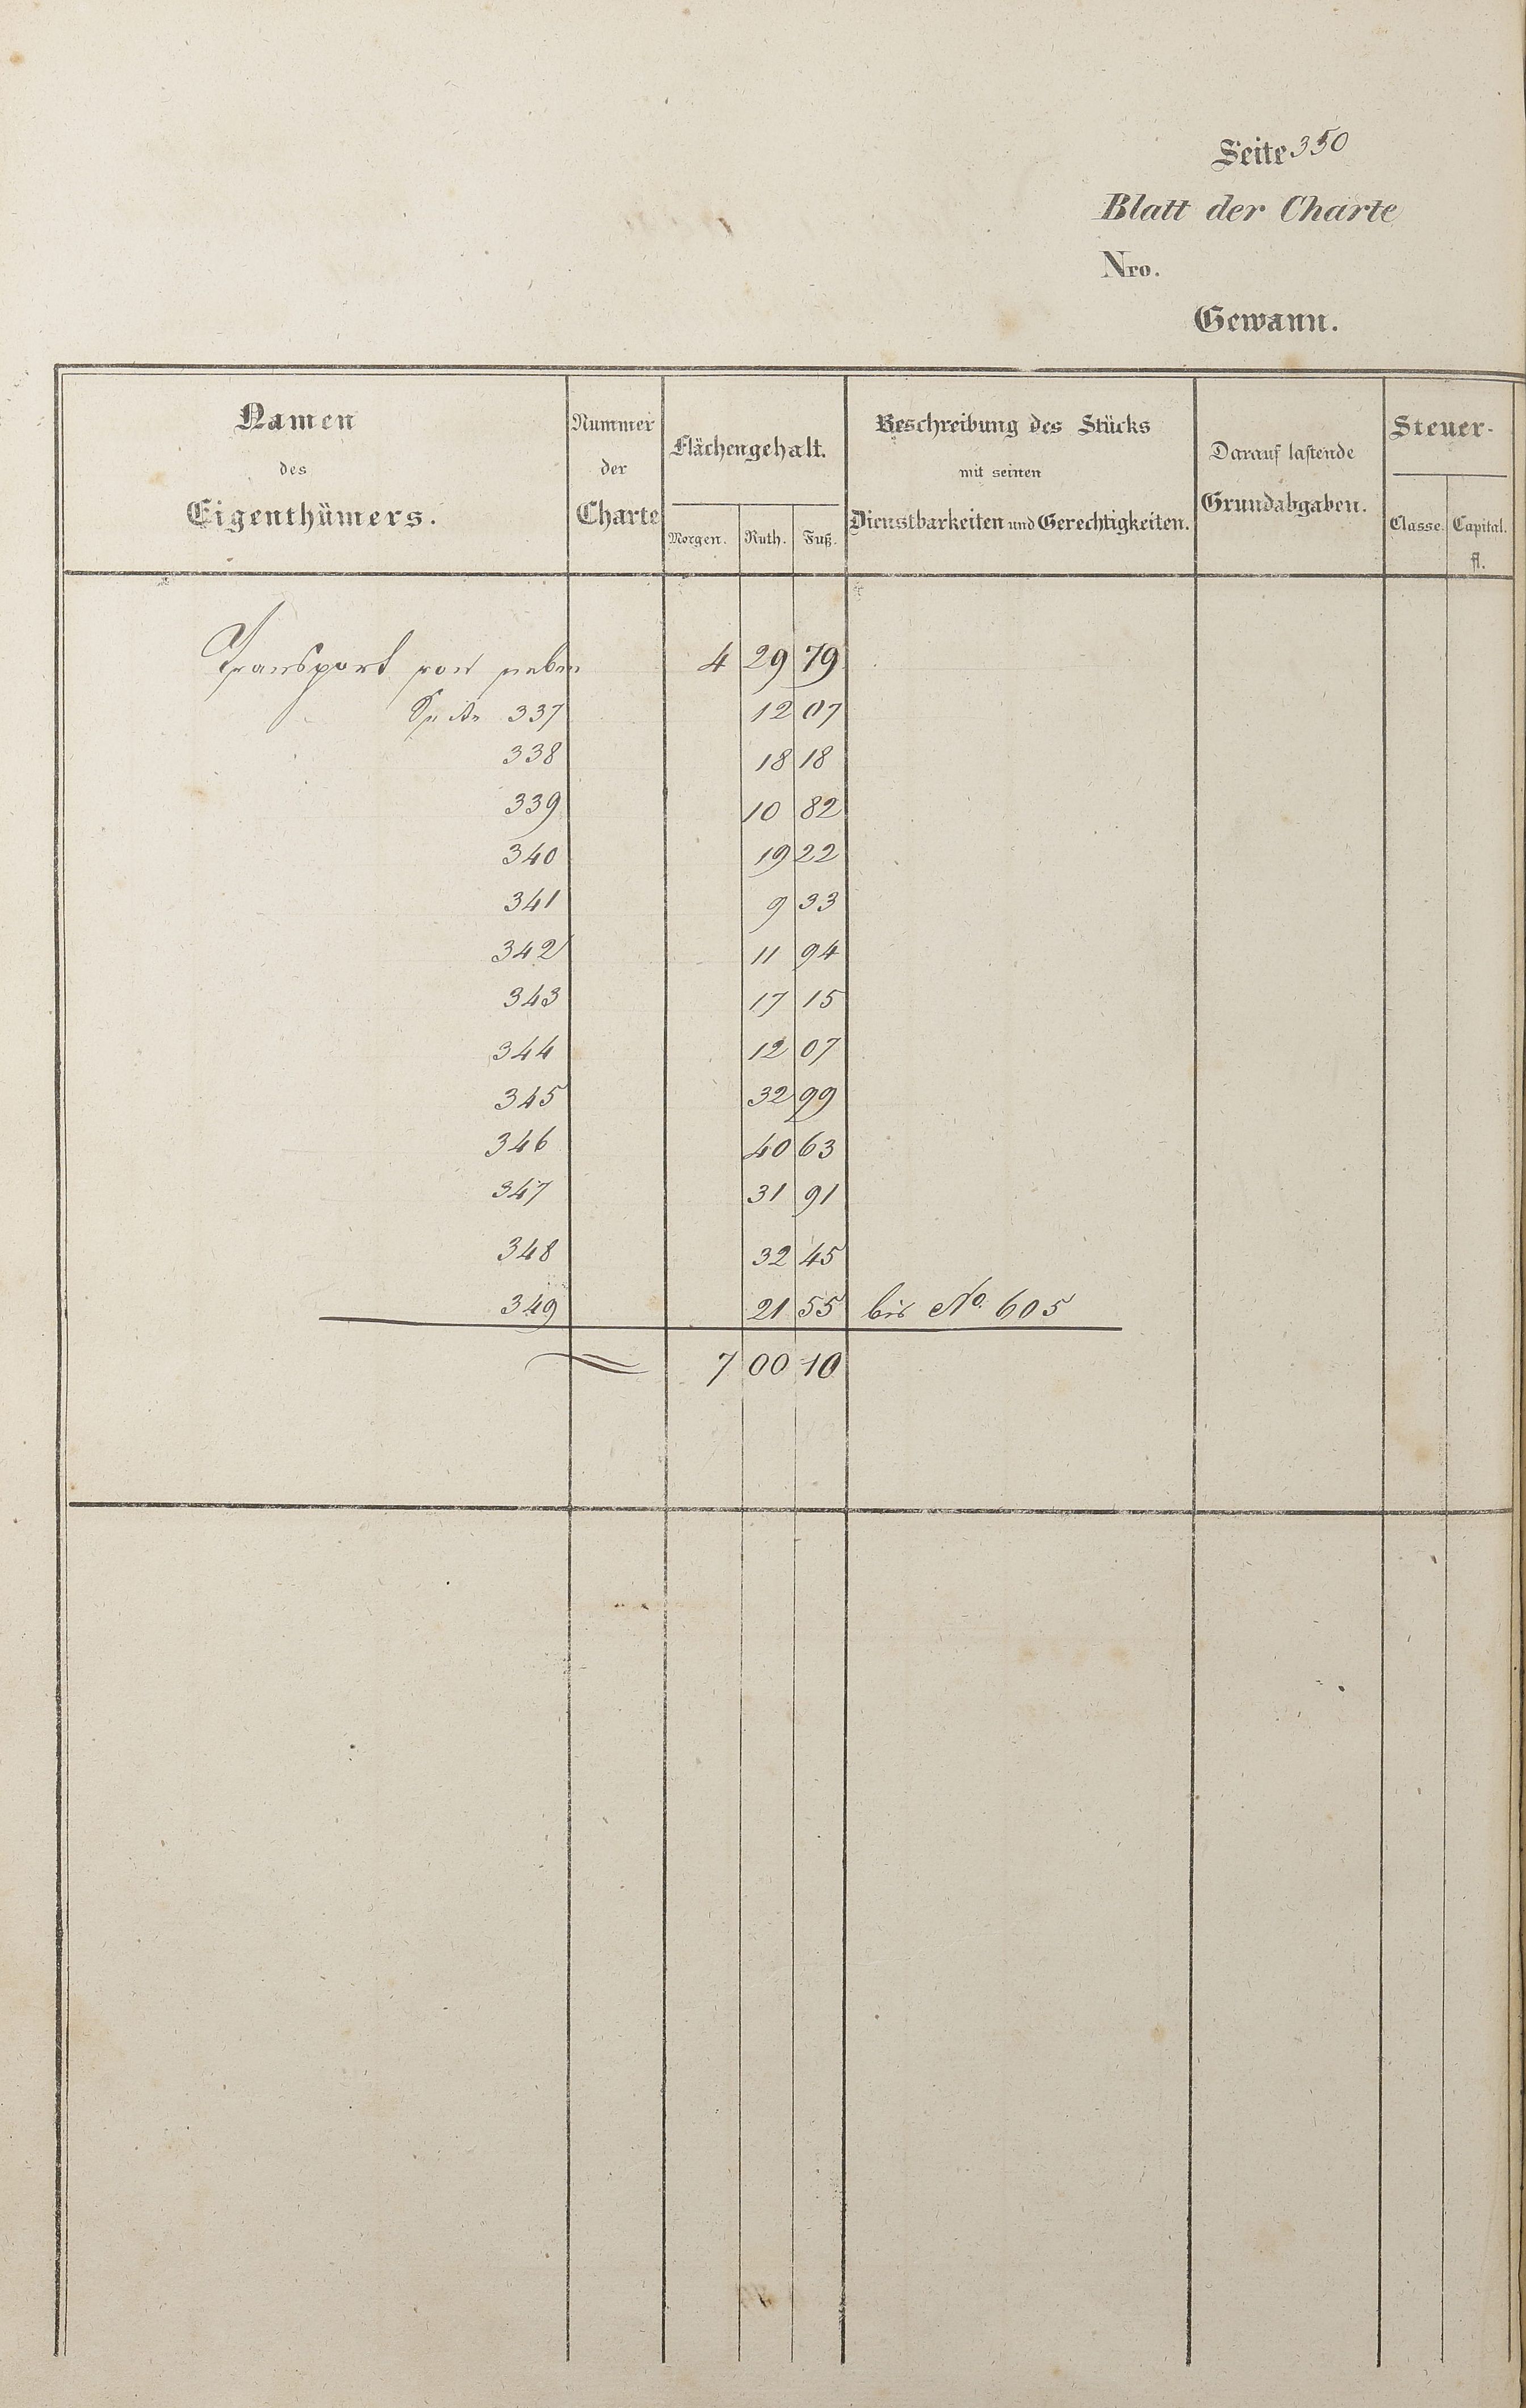 Seite 350
Blatt der Charte
Nro.
Gewann.
Namen des Eigenthümers.
Nummer der Charte
Flächengehalt.
Morgen. Ruth. Fuß.
Beschreibung des Stücks
mit seinen
Dienstbarkeiten und Gerechtigkeiten.
Darauf lastende
Grundabgaben.
Steuer-
Classe. Capital.
fl.
Transport von neben 4 29 79
Seite 337 12 07
338 18 18
339 10 82
340 19 22
341 9 33
342 11 94
343 17 15
344 12 07
345 32 99
346 40 63
347 31 91
348 32 45
349 21 55 bis No. 605
7 00 10